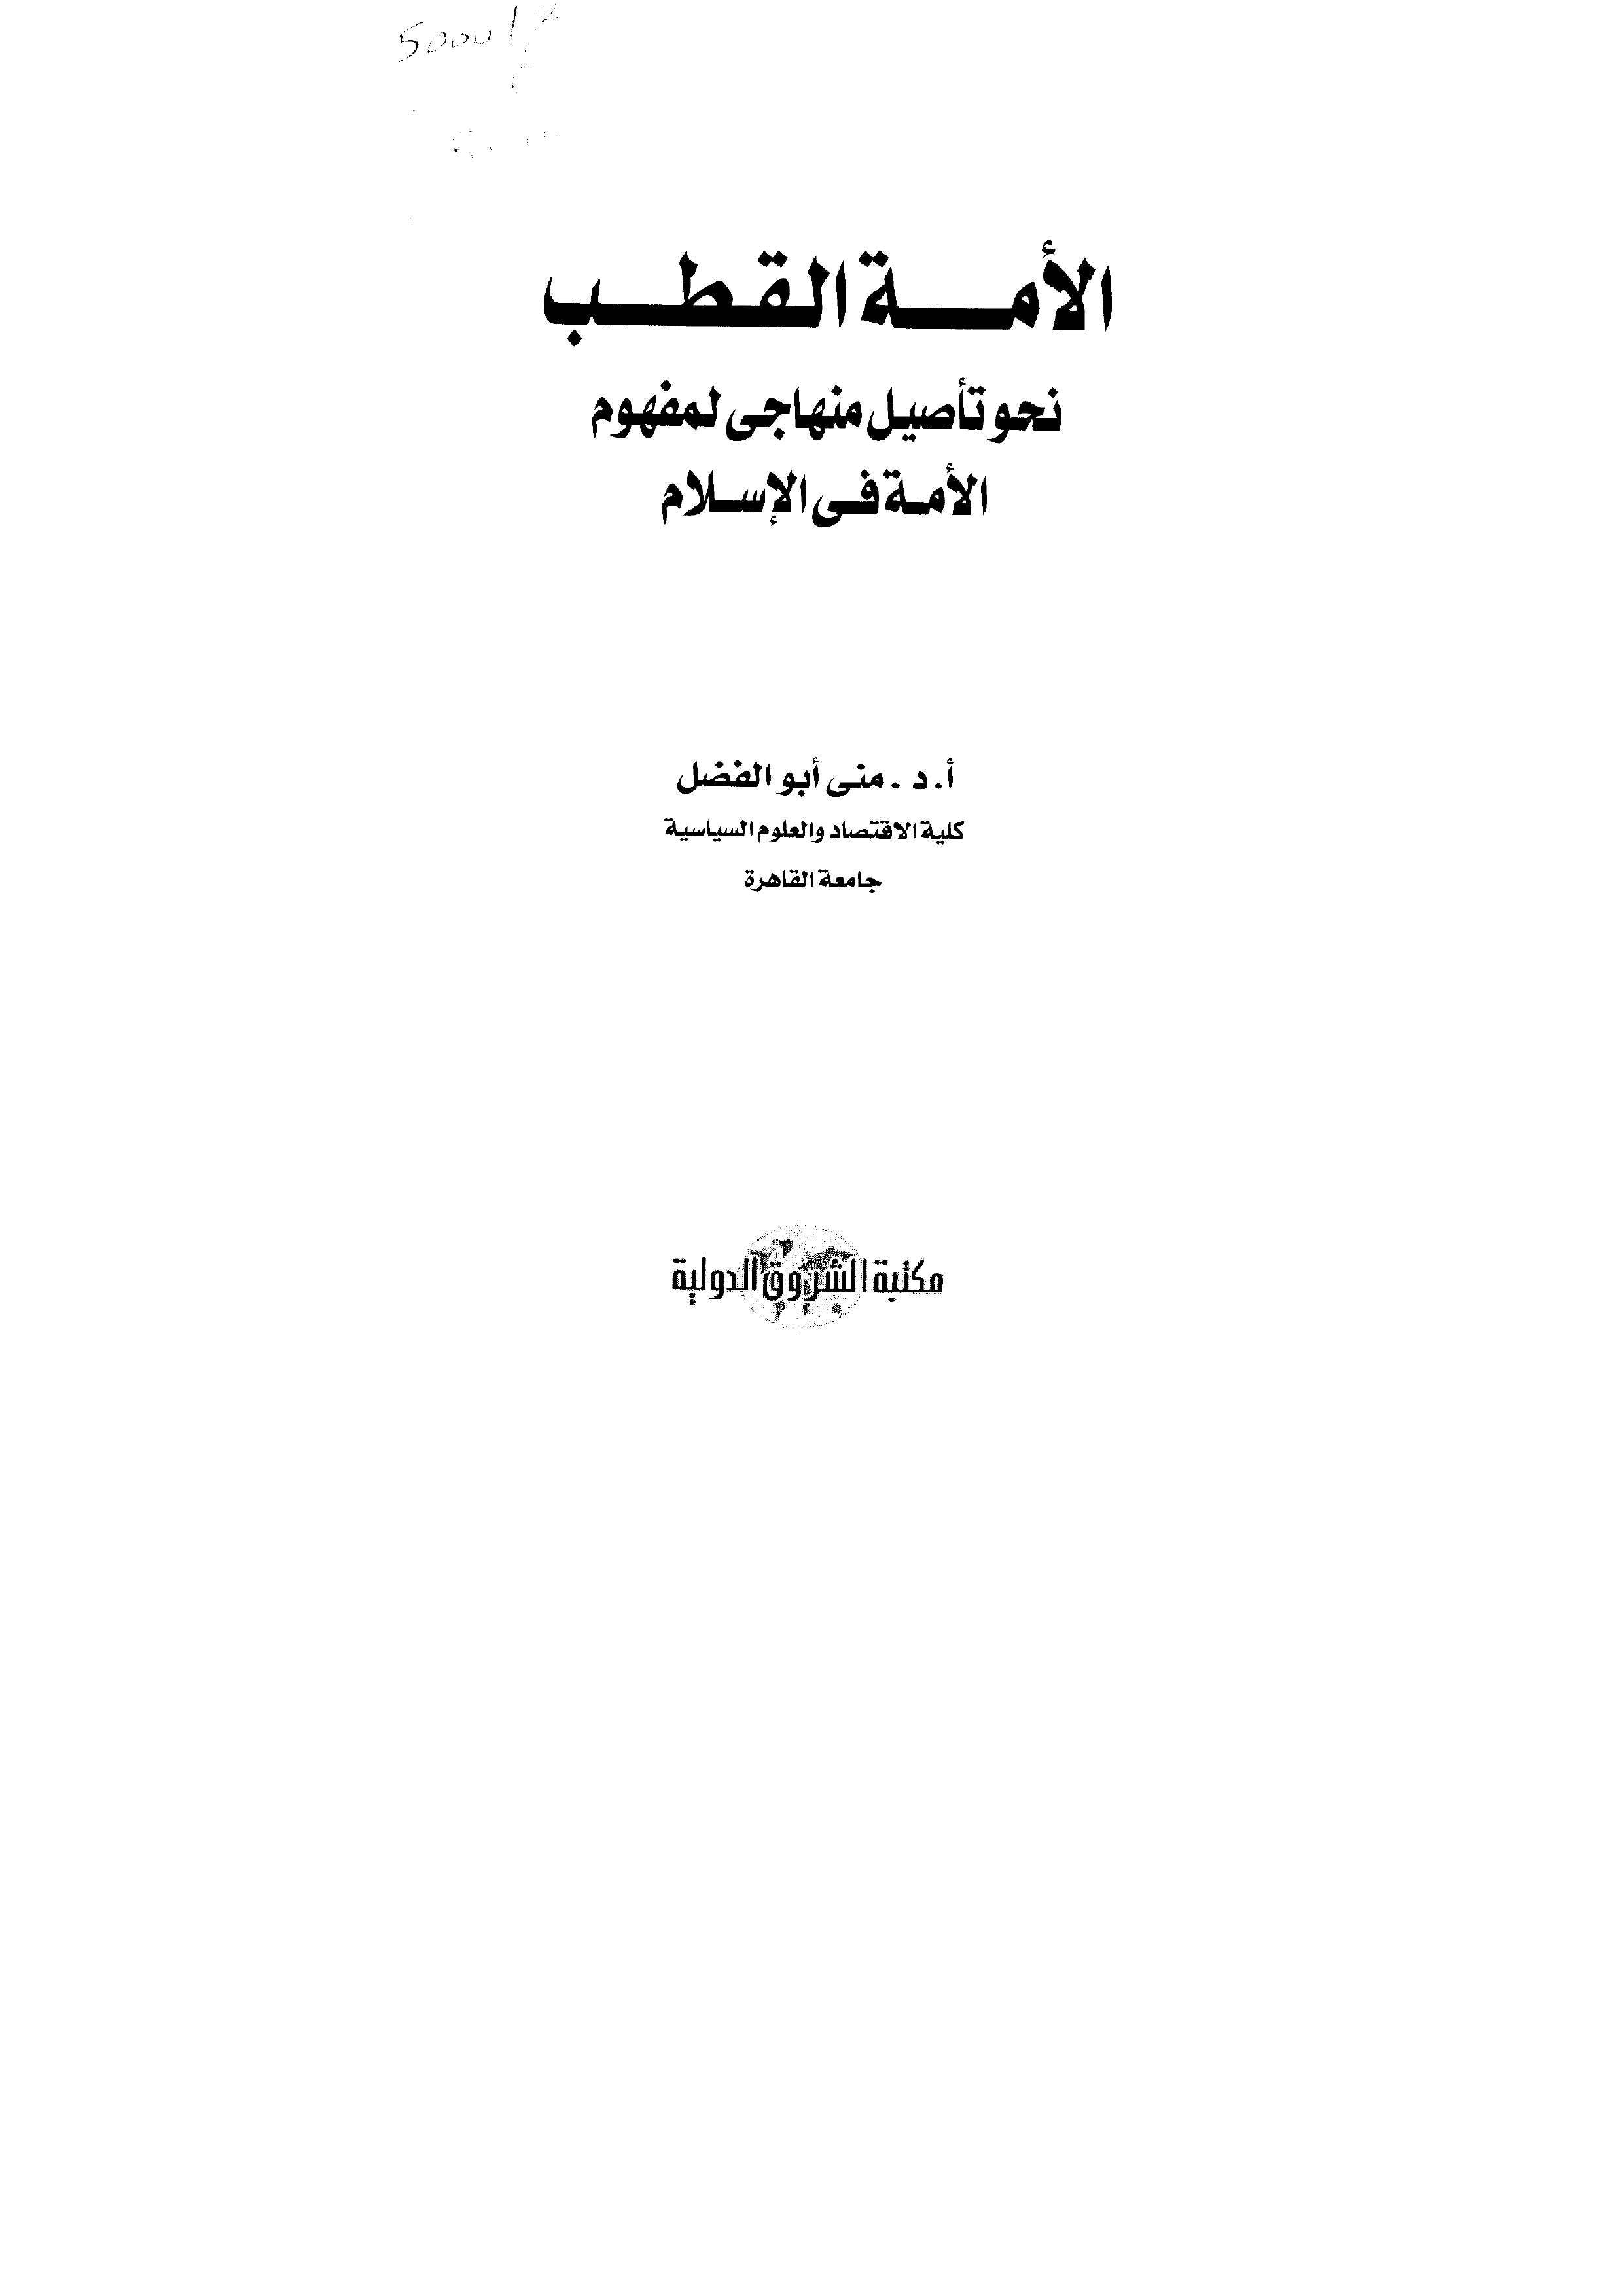 5000
الأمة القطب
نحو تأصيل منهاجى لمفهوم
الأمة فى الإسلام
أ. د. منى أبو الفضل
كلية الاقتصاد والعلوم السياسية
جامعة القاهرة
مكتبة الشروق الدولية